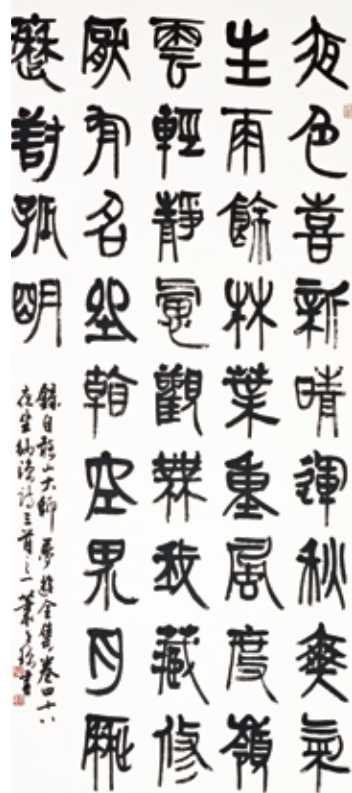 夜色喜新晴秋爽氣
生雨餘林葉重風度嶺
雲輕靜慮觀無我藏修
厭有名坐看空界月歷
歷對孤明
錄自憨山大師夢遊全集卷四十八
夜坐納涼詩三首之一葉書